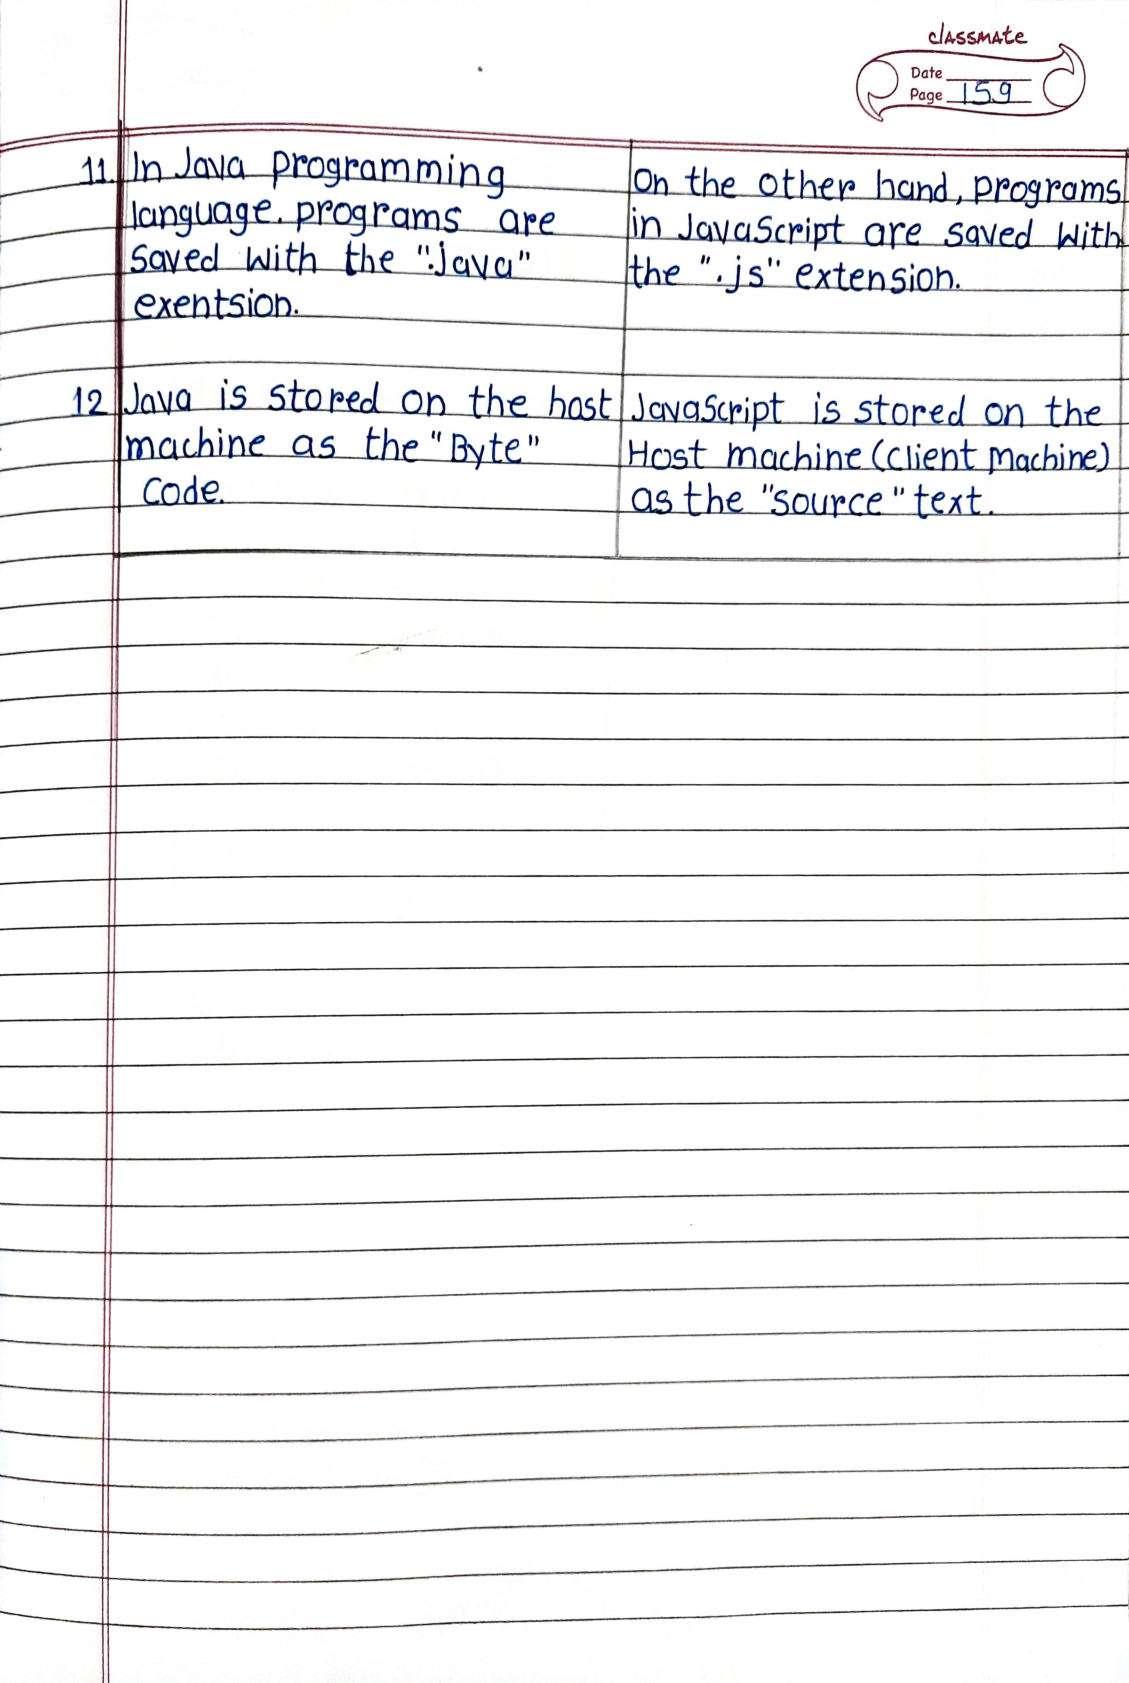 classmate
Date
Page 159
11. In Java programming
language. programs are
saved with the ".java"
exentsion.
On the other hand, programs
in JavaScript are saved with
the ".js" extension.
12 Java is stored on the host
machine as the "Byte"
code.
JavaScript is stored on the
Host machine (client machine)
as the "source" text.